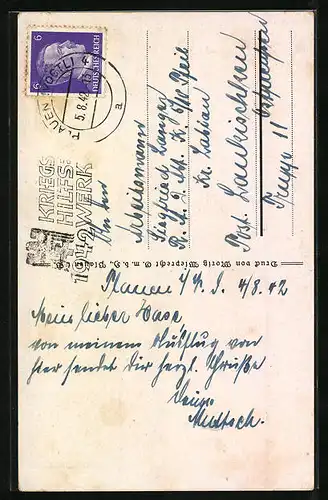 6
DEUTSCHES REICH
6
PLAUEN (VOGTL) 4
5.8.42
a
KRIEGS
HILFS-
WERK
1942
An den
Arbeitsmann
Siegfried Langer
Kr. Labiau
Post. Laukischken
Ostpreußen
Druck von Moritz Wieprecht G.m.b.H. Plauen
Plauen i/V. d. 4/8.42
Mein lieber Hase,
von meinem Ausflug von
hier sendet dir herzl. Grüße
Deine
Muttsch.